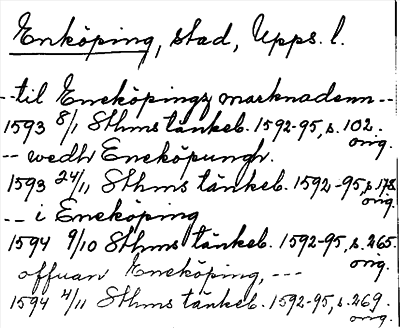 Enköping, stad, Upps. l.
--til Eneköpingz marknadenn--
1593 8/1 Sthms tänkeb. 1592-95, s. 102.
orig.
-- wedh Eneköpungh.
1593 24/11 Sthms tänkeb. 1592-95, s. 178.
orig.
-- i Eneköping
1594 9/10 Sthms tänkeb. 1592-95, s. 265.
orig.
offuan Eneköping, ---
1594 4/11 Sthms tänkeb. 1592-95, s. 269.
orig.